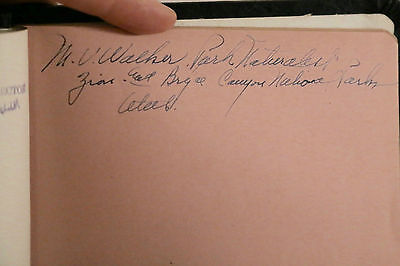 M. V. Walker, Park Naturalist
Zion and Bryce Canyon National Parks
Utah.